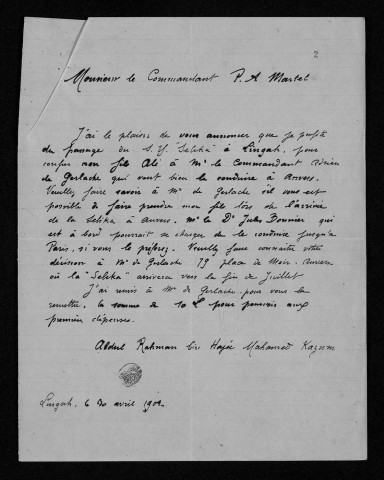 2
Monsieur le Commandant P. A. Martel
J'ai le plaisir de vous annoncer que je profite
du passage du S. Y. "Selika" à Lingah, pour
confier mon fils Ali à Mr le Commandant Adrien
de Gerlache qui veut bien le conduire à Anvers.
Veuillez faire savoir à Mr de Gerlache s'il vous est
possible de faire prendre mon fils lors de l'arrivée
de la Selika à Anvers. Mr le Dr Jules Bonnier qui
est à bord pourrait se charger de le conduire jusqu'à
Paris, si vous le préférez. Veuillez faire connaître votre
décision à Mr de Gerlache 79 place de Meir. Anvers
où la "Selika" arrivera vers la fin de Juillet
J'ai remis à Mr de Gerlache, pour vous la
remettre, la somme de 10 £ pour pourvoir aux
premières dépenses.
Abdul Rahman bin Hajee Mahomed Kazem
Lingah, le 30 avril 1901